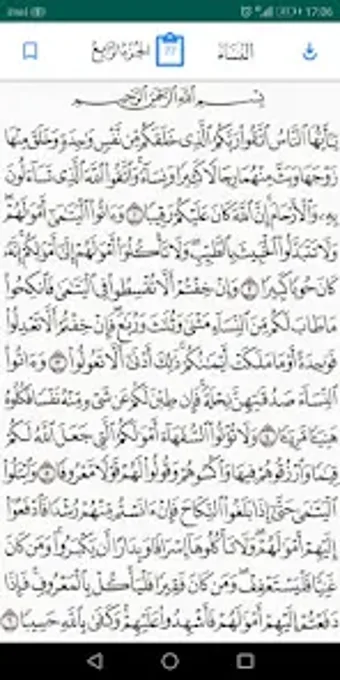 17:06
النِّسَاء 77 الجزء الرابع
بِسْمِ ٱللَّهِ ٱلرَّحْمَٰنِ ٱلرَّحِيمِ
يَٰٓأَيُّهَا ٱلنَّاسُ ٱتَّقُوا۟ رَبَّكُمُ ٱلَّذِى خَلَقَكُم مِّن نَّفْسٍ وَٰحِدَةٍ وَخَلَقَ مِنْهَا
زَوْجَهَا وَبَثَّ مِنْهُمَا رِجَالًا كَثِيرًا وَنِسَآءً وَٱتَّقُوا۟ ٱللَّهَ ٱلَّذِى تَسَآءَلُونَ
بِهِۦ وَٱلْأَرْحَامَ إِنَّ ٱللَّهَ كَانَ عَلَيْكُمْ رَقِيبًا ١ وَءَاتُوا۟ ٱلْيَتَٰمَىٰٓ أَمْوَٰلَهُمْ
وَلَا تَتَبَدَّلُوا۟ ٱلْخَبِيثَ بِٱلطَّيِّبِ وَلَا تَأْكُلُوٓا۟ أَمْوَٰلَهُمْ إِلَىٰٓ أَمْوَٰلِكُمْ إِنَّهُۥ
كَانَ حُوبًا كَبِيرًا ٢ وَإِنْ خِفْتُمْ أَلَّا تُقْسِطُوا۟ فِى ٱلْيَتَٰمَىٰ فَٱنكِحُوا۟
مَا طَابَ لَكُم مِّنَ ٱلنِّسَآءِ مَثْنَىٰ وَثُلَٰثَ وَرُبَٰعَ فَإِنْ خِفْتُمْ أَلَّا تَعْدِلُوا۟
فَوَٰحِدَةً أَوْ مَا مَلَكَتْ أَيْمَٰنُكُمْ ذَٰلِكَ أَدْنَىٰٓ أَلَّا تَعُولُوا۟ ٣ وَءَاتُوا۟
ٱلنِّسَآءَ صَدُقَٰتِهِنَّ نِحْلَةً فَإِن طِبْنَ لَكُمْ عَن شَىْءٍ مِّنْهُ نَفْسًا فَكُلُوهُ
هَنِيٓـًٔا مَّرِيٓـًٔا ٤ وَلَا تُؤْتُوا۟ ٱلسُّفَهَآءَ أَمْوَٰلَكُمُ ٱلَّتِى جَعَلَ ٱللَّهُ لَكُمْ
قِيَٰمًا وَٱرْزُقُوهُمْ فِيهَا وَٱكْسُوهُمْ وَقُولُوا۟ لَهُمْ قَوْلًا مَّعْرُوفًا ٥ وَٱبْتَلُوا۟
ٱلْيَتَٰمَىٰ حَتَّىٰٓ إِذَا بَلَغُوا۟ ٱلنِّكَاحَ فَإِنْ ءَانَسْتُم مِّنْهُمْ رُشْدًا فَٱدْفَعُوٓا۟
إِلَيْهِمْ أَمْوَٰلَهُمْ وَلَا تَأْكُلُوهَآ إِسْرَافًا وَبِدَارًا أَن يَكْبَرُوا۟ وَمَن كَانَ
غَنِيًّا فَلْيَسْتَعْفِفْ وَمَن كَانَ فَقِيرًا فَلْيَأْكُلْ بِٱلْمَعْرُوفِ فَإِذَا
دَفَعْتُمْ إِلَيْهِمْ أَمْوَٰلَهُمْ فَأَشْهِدُوا۟ عَلَيْهِمْ وَكَفَىٰ بِٱللَّهِ حَسِيبًا ٦